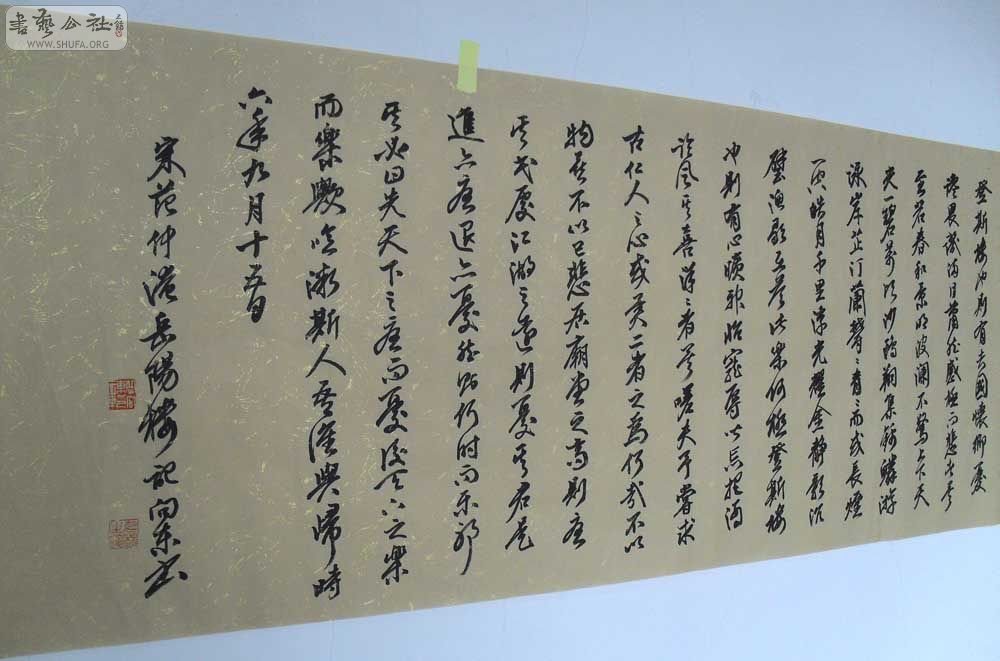 書藝公社
WWW.SHUFA.ORG
登斯樓也則有去國懷鄉憂
讒畏譏滿目蕭然感極而悲者矣
至若春和景明波瀾不驚上下天
光一碧萬頃沙鷗翔集錦鱗游
泳岸芷汀蘭鬱々青々而或長煙
一空皓月千里浮光耀金靜影沉
璧漁歌互答此樂何極登斯樓
也則有心曠神怡寵辱皆忘把酒
臨風其喜洋々者矣嗟夫予嘗求
古仁人之心或異二者之為何哉不以
物喜不以己悲居廟堂之高則憂
其民處江湖之遠則憂其君是
進亦憂退亦憂然則何時而樂耶
其必曰先天下之憂而憂後天下之樂
而樂歟噫微斯人吾誰與歸時
六年九月十五日
宋范仲淹岳陽樓記向東书